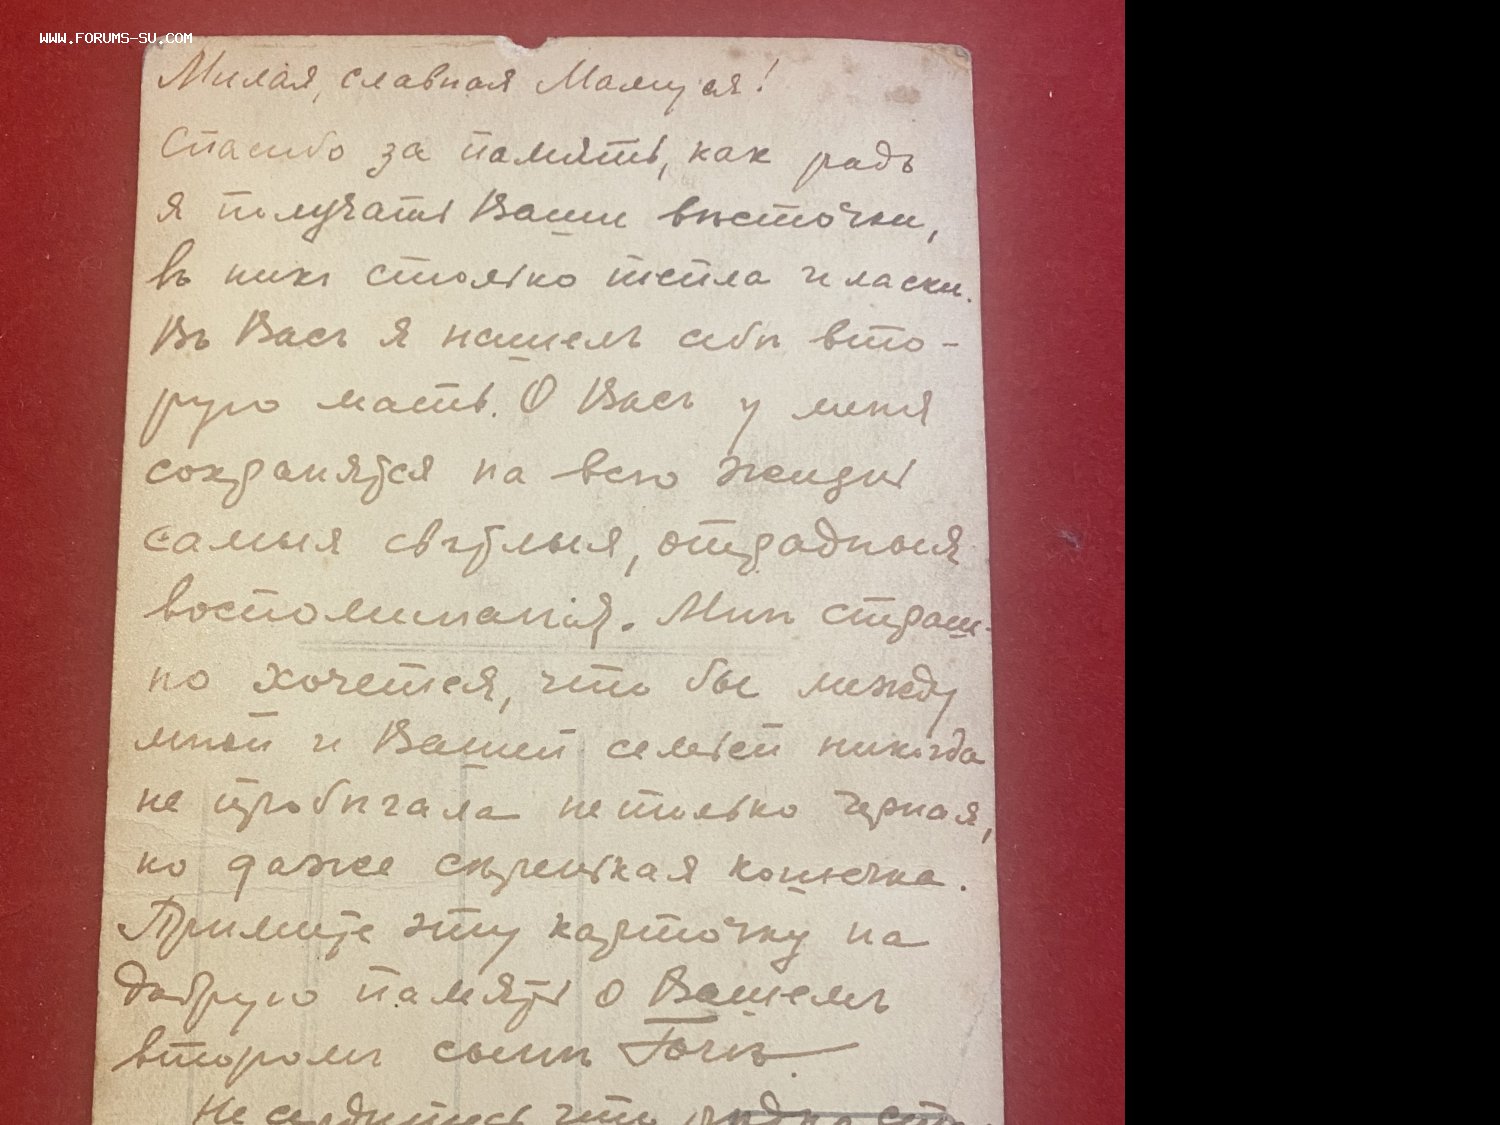 WWW.FORUMS-SU.COM
Милая, славная Мамуся!
Спасибо за память, как радъ
я получать Ваши вѣсточки,
въ нихъ столько тепла и ласки.
Въ Васъ я нашелъ себѣ вто-
рую мать. О Васъ у меня
сохранятся на всю жизнь
самыя свѣтлыя, отрадныя
воспоминанія. Мнѣ страш-
но хочется, что бы между
мной и Вашей семьей никогда
не пробѣгала не только черная,
но даже сѣренькая кошечка.
Примите эту карточку на
добрую память о Вашемъ
второмъ сынѣ
Не сердитесь что